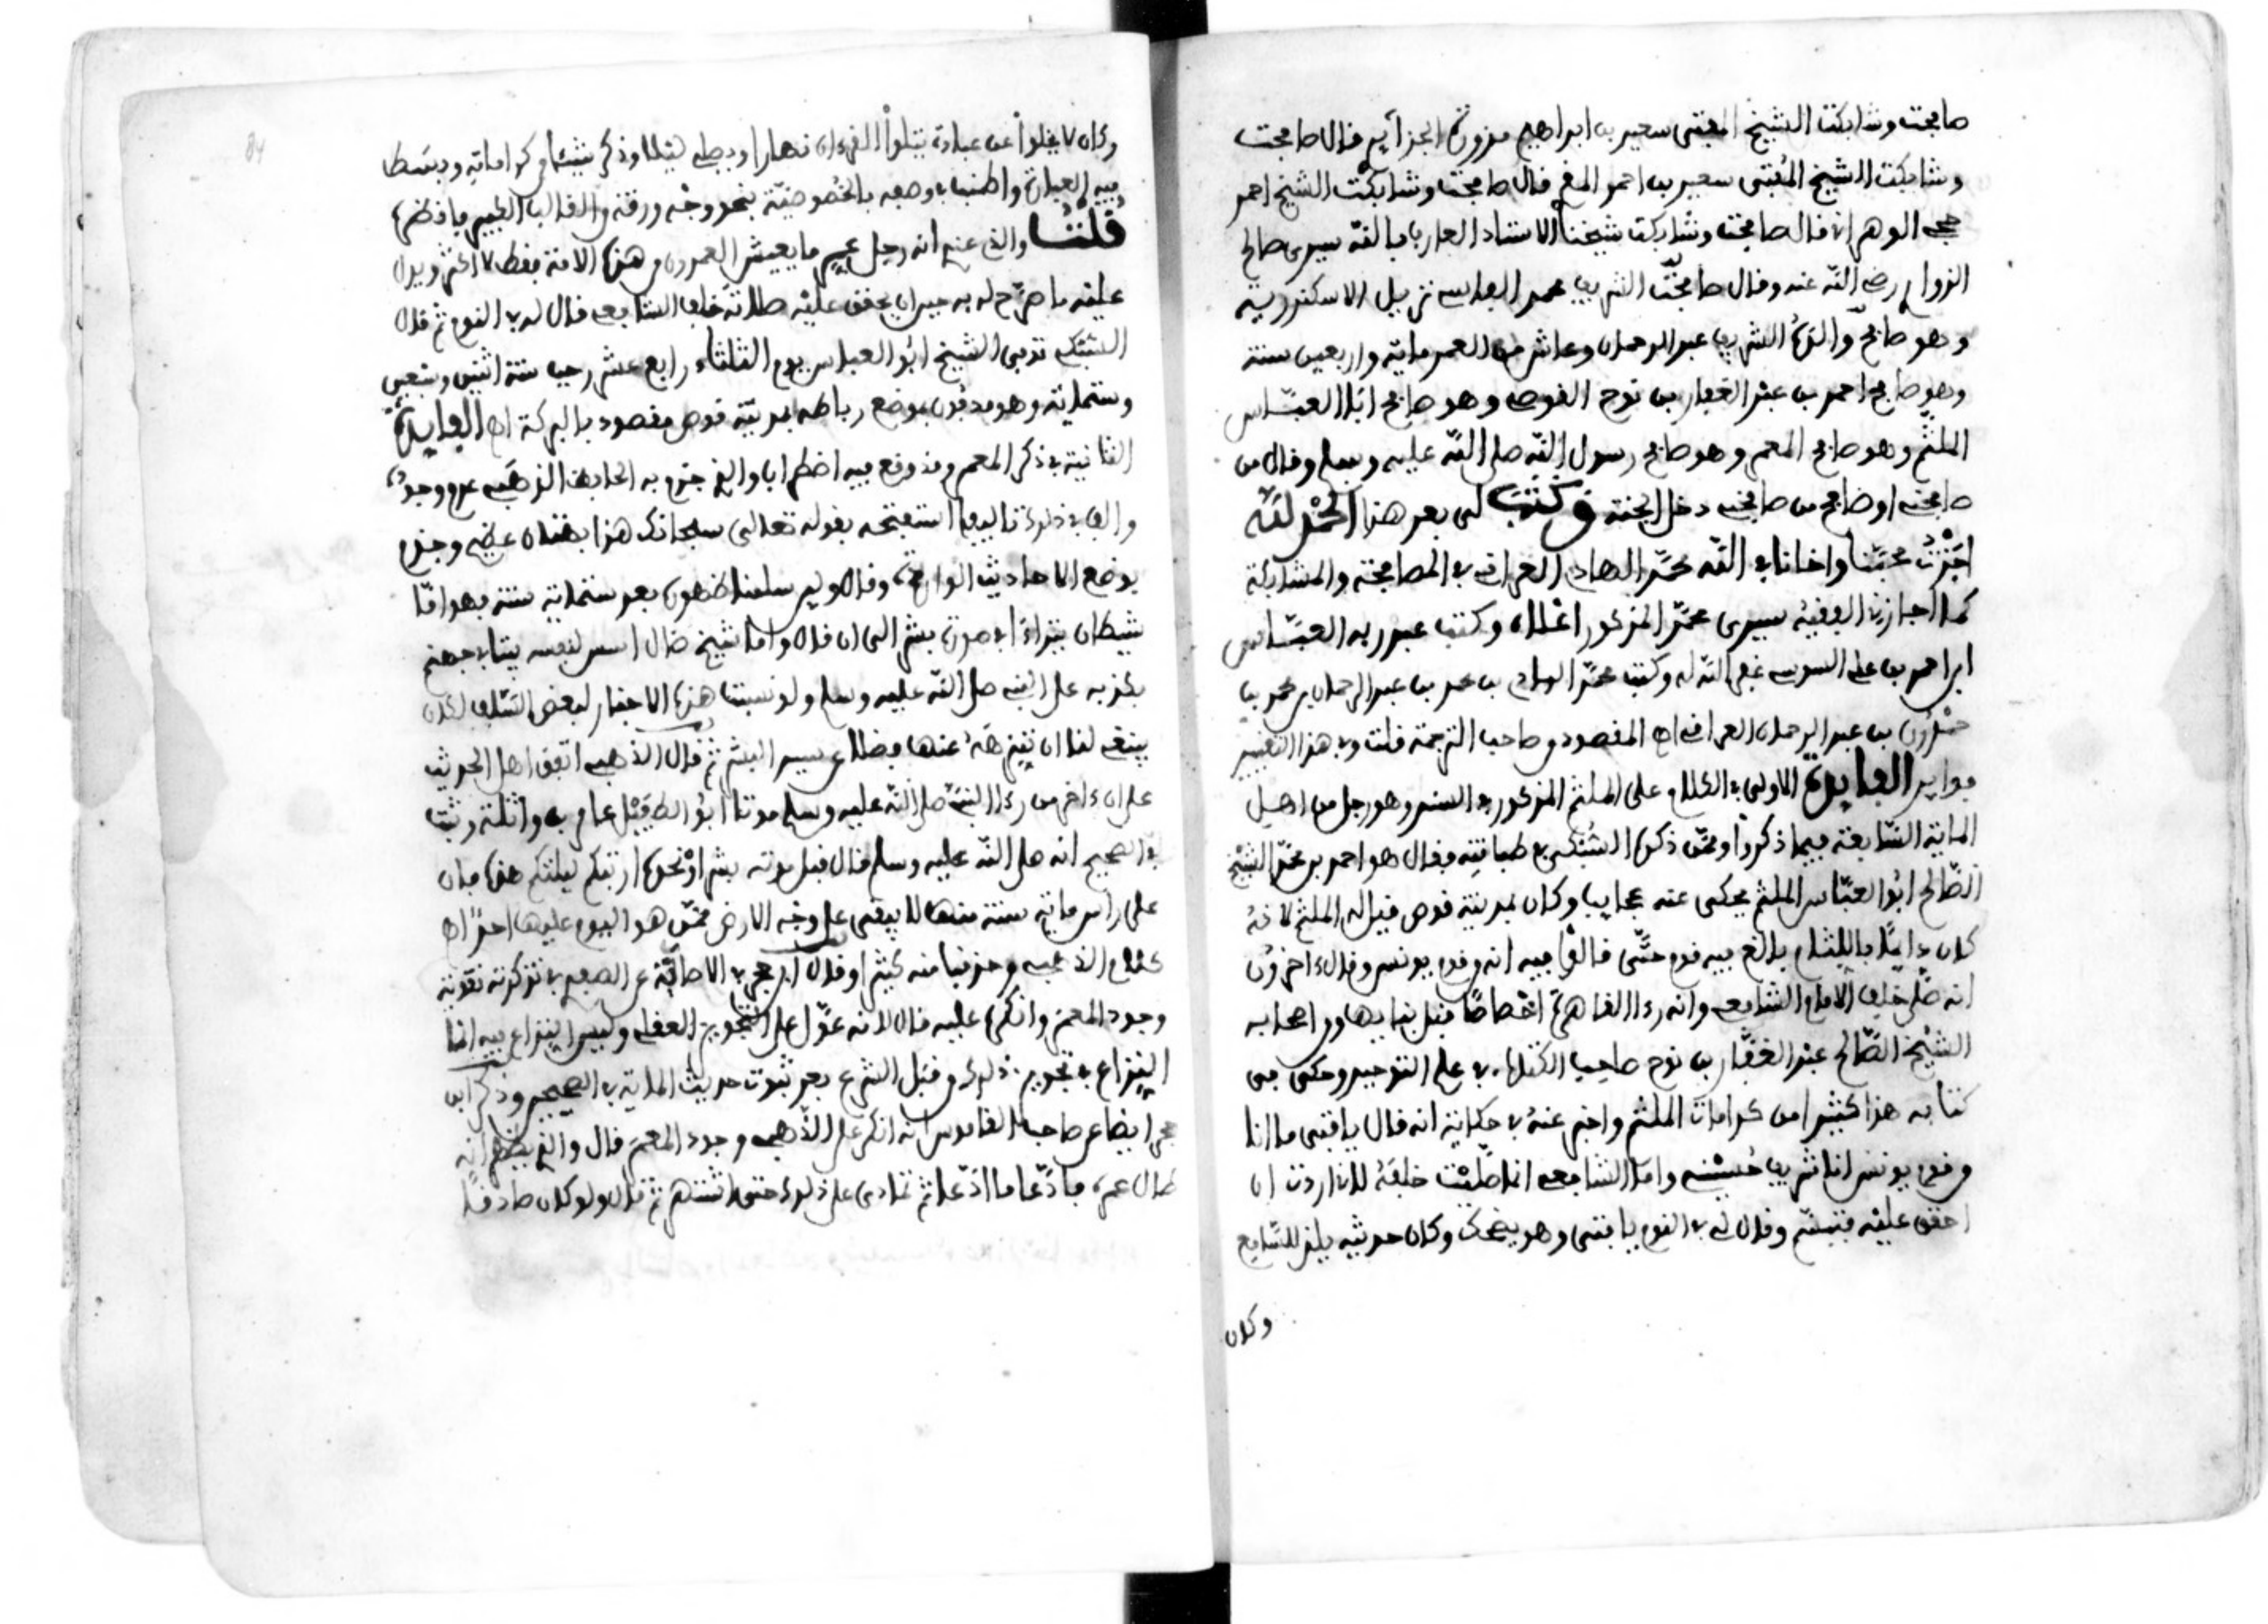 صافحت وشابكت الشيخ المفتى سعيد بن ابراهيم فدورة الجزائرى قال صافحت
وشابكت الشيخ المفتى سعيد بن احمد المقرى قال صافحت وشابكت الشيخ احمد
حجى الوهرانى قال صافحت وشابكت شيخنا الاستاذ العارف بالله سيدى صالح
الزواوى رضى الله عنه وقال صافحت الشريف محمد الفاسى نزيل الاسكندرية
وهو صافح والده الشريف عبد الرحمان وعاش من العمر ماية واربعين سنة
وهو صافح احمد بن عبد الغفار بن نوح القوصى وهو صافح ابا العباس
الملثم وهو صافح المعمر وهو صافح رسول الله صلى الله عليه وسلم وقال من
صافحنى او صافح من صافحنى دخل الجنة وكتب لى بعد هذا الحمد لله
اجزت محبنا واخانا فى الله محمد الهادى العراقى فى المصافحة والمشابكة
كما اجازنى الفقيه سيدى محمد المذكور اعلاه وكتب عبد ربه العباس
ابن احمد بن على السوسى غفر الله له وكتب محمد الهادى بن محمد بن عبد الرحمان بن محمد بن
حمدون بن عبد الرحمان العراقى اه المقصود من صاحب الترجمة قلت وفى هذا التقييد
فوايد الفايدة الاولى فى الكلام على الملثم المذكور فى السند وهو رجل من اهل
الماية السابعة فيما ذكروا وممن ذكره السبكى فى طبقاته فقال هو احمد بن محمد الشيخ
الصالح ابو العباس الملثم يحكى عنه عجايب وكان بمدينة قوص قيل له الملثم لانه
كان دايما باللثام بالغ فيه قوم حتى قالوا فيه انه من قوم يونس وقال ءاخرون
انه صلى خلف الامام الشافعى وانه رءا القاهرة اخصاصا قبل بنايها ومن اصحابه
الشيخ الصالح عبد الغفار بن نوح صاحب الكتاب فى علم التوحيد وحكى فى
كتابه هذا كثيرا من كرامات الملثم واخبر عنه فى حكاية انه قال يا فتى ما انا
من قوم يونس انا شريف حسينى واما الشافعى انا صليت خلفه لانى اردت ان
احقق عليه فتبسم وقال لى فى النوم يا فتى وهو يضحك وكان حديثه يلذ للسامع
وكان
وكان لا يخلوا عن عبادة يتلوا القرءان نهارا ويصلى ليلا وذكر شيئا من كراماته وبسط
فيه العبارة واطنب فى وصفه بالخصوصية نحو وجه ورقة والغالب الطبيب
قلت والذى عندى انه رجل عجيب ما يعيش المعمرون من هذه الامة فقط لا اكثر ويدل
عليه ما صرح له به حين ان يحقق عليه صلاته خلف الشافعى قال له فى النوم ثم قال
السبكى توفى الشيخ ابو العباس يوم الثلثاء رابع عشر رجب سنة اثنين وسبعين
وستماية وهو مدفون بموضع رباطه بمدينة قوص مقصود بالبركة اه الفايدة
الثانية فى ذكر المعمر وقد وقع فيه اضطراب والذى جزم به الحافظ الذهبى عدم وجوده
والف فى ذلك تاليفا استفتحه بقوله تعالى سبحانك هذا بهتان عظيم وجزم
بوضع الاحاديث الواردة وقال ولئن سلمنا ظهوره بعد ستماية سنة فهو اما
شيطان تبدا فى صورة بشر الى ان قال واما شيخ ضال اسس لنفسه بيتا فى جهنم
بكذبه على النبى صلى الله عليه وسلم ولو نسبت هذه الاخبار لبعض السلف لكان
ينبغى لنا ان ننزهه عنها فضلا عن سيد البشر ثم قال الذهبى اتفق اهل الحديث
على ان ءاخر من رءا النبى صلى الله عليه وسلم موتا ابو الطفيل عامر بن واثلة وثبت
فى الصحيح انه صلى الله عليه وسلم قال قبل موته بشهر او نحوه ارايتكم ليلتكم هذه فان
على راس ماية سنة منها لا يبقى على وجه الارض ممن هو اليوم عليها احد اه
كلام الذهبى وحذفنا منه كثيرا وقال ابن حجر فى الاصابة عن الصفدى فى تذكرته تقوية
وجود المعمر وانكره عليه قال لانه عول على التجويز العقلى وليس النزاع فيه انما
النزاع فى تجويز ذلك من قبل الشرع بعد ثبوت حديث الماية فى الصحيحين وذكر ابن
حجر ايضا عن صاحب القاموس انه انكر على الذهبى وجود المعمر قال والذى يظهر انه
طال عمره فادعا ما ادعا ثم تمادى على ذلك حتى اشتهر ثم قال ولو كان صادقا